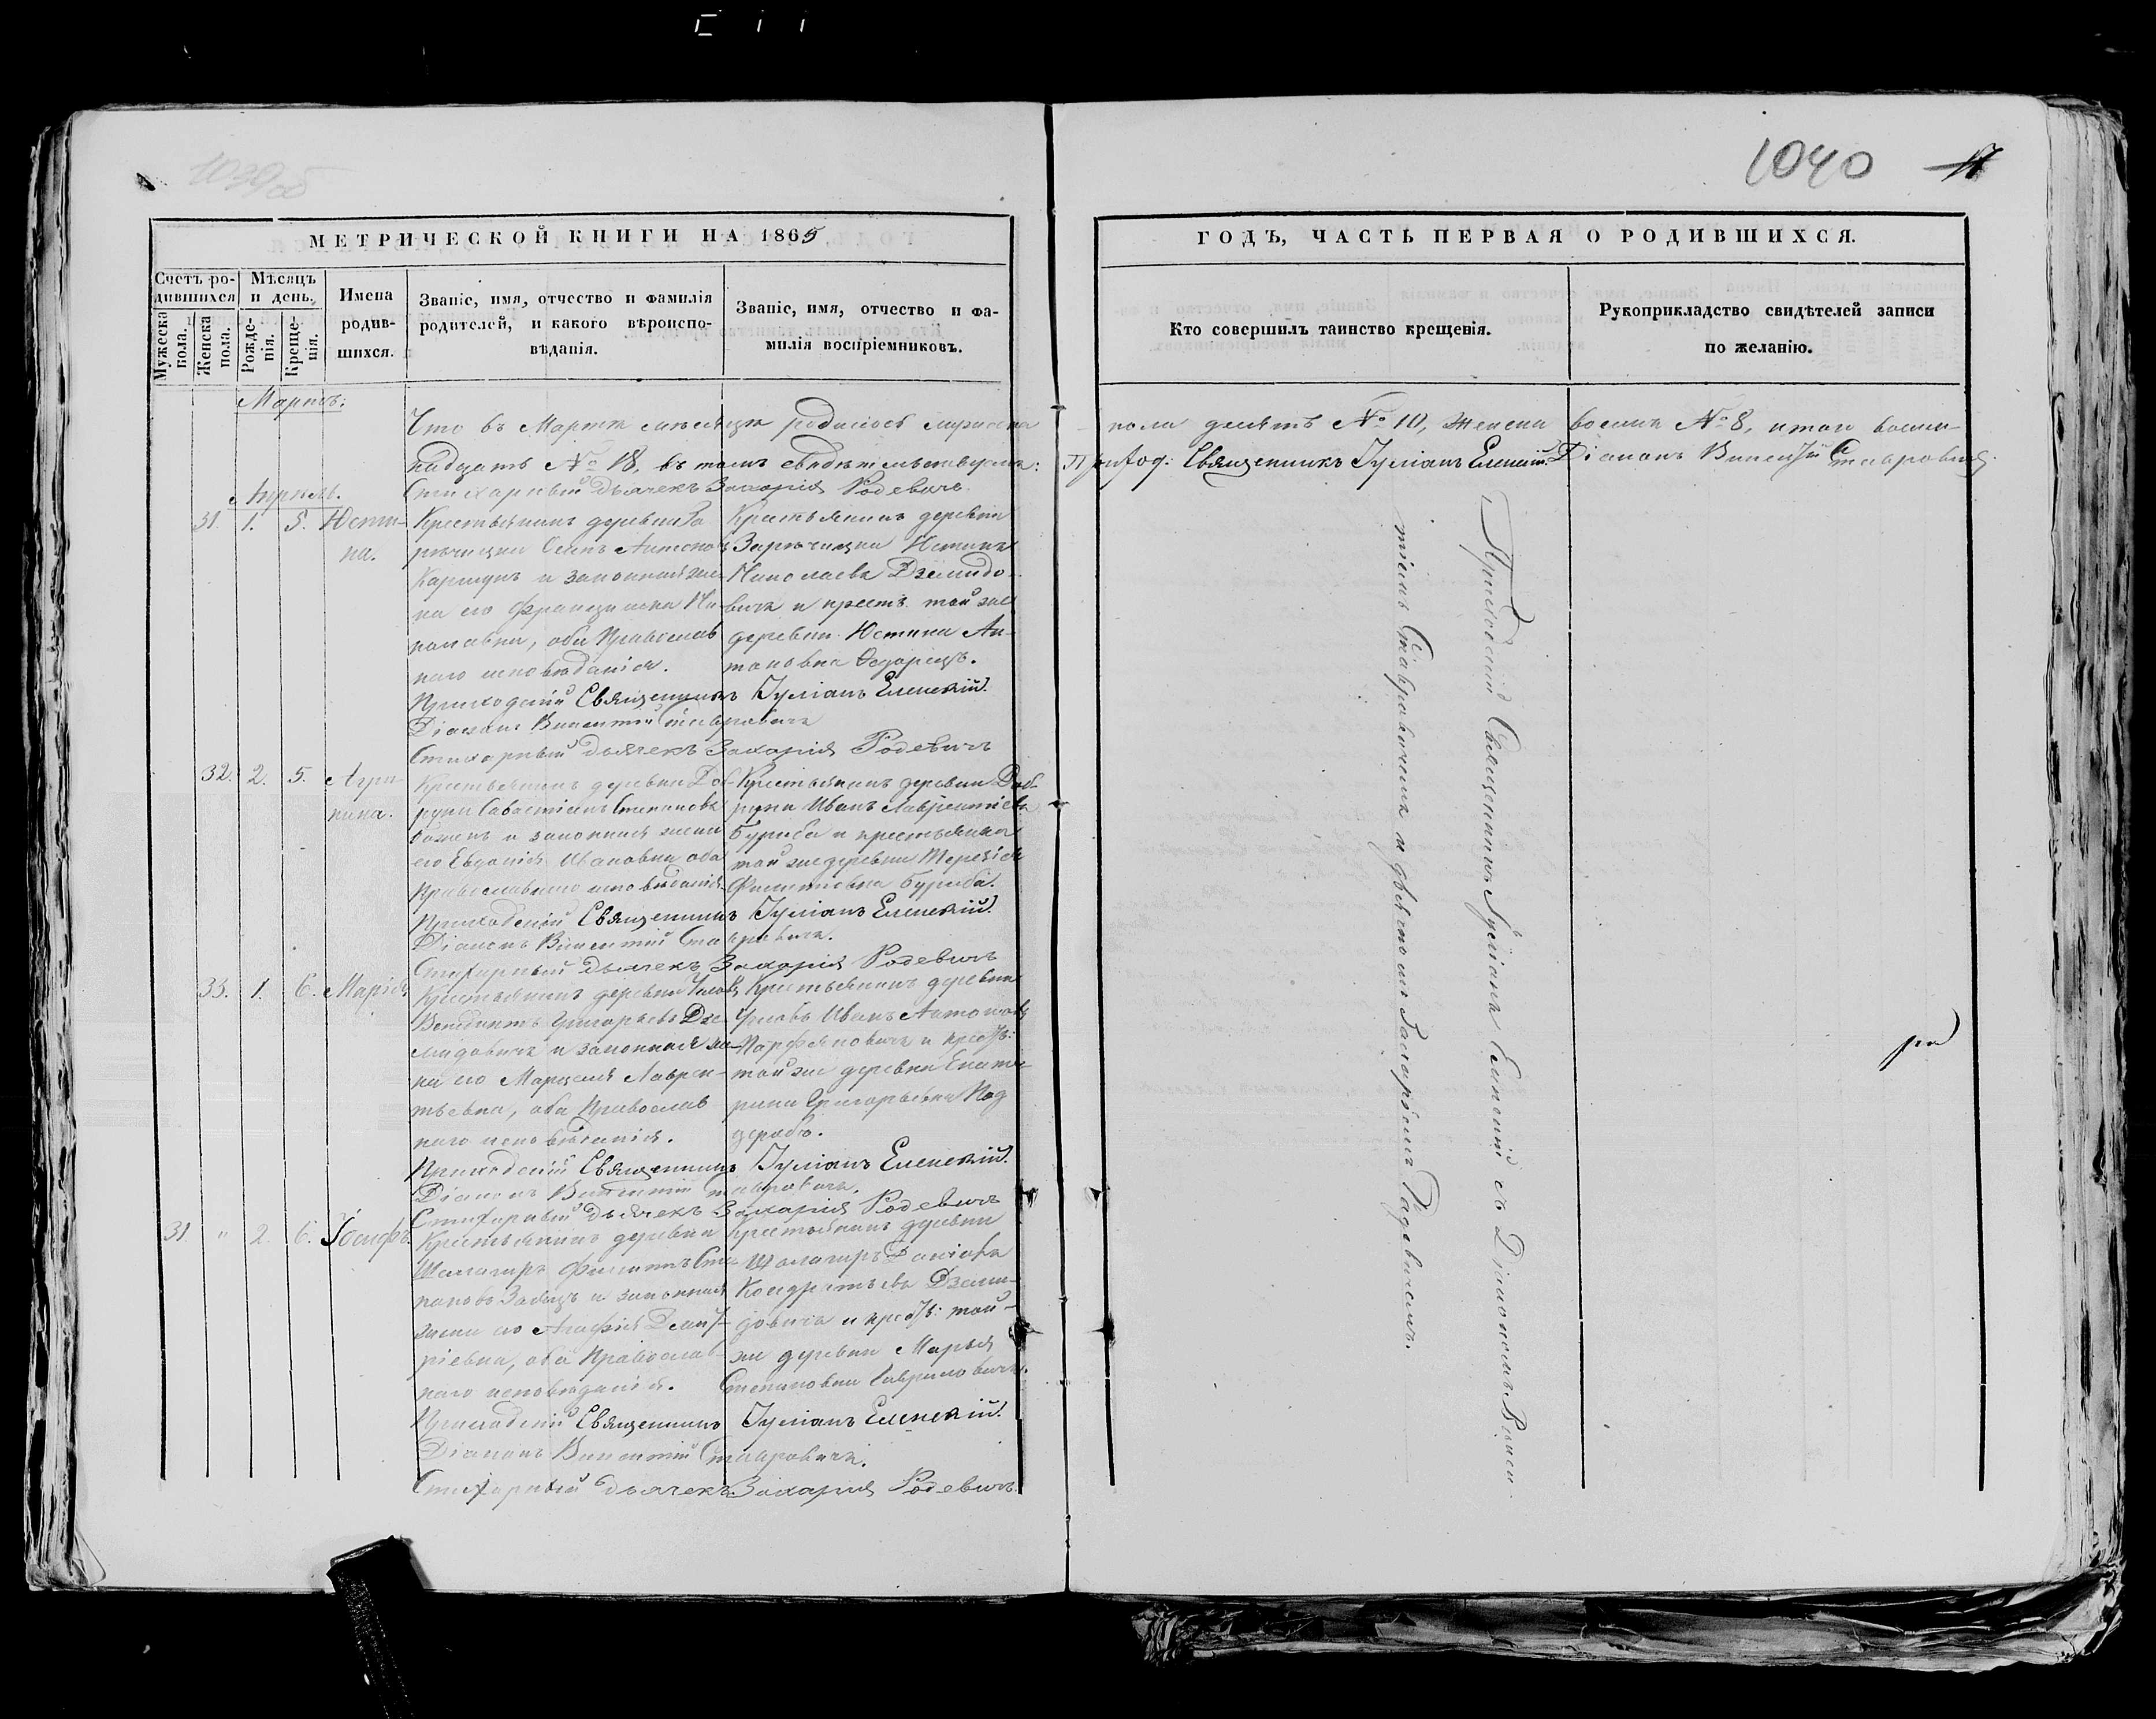 1039 об
1040 17
МЕТРИЧЕСКОЙ КНИГИ НА 1865
ГОДЪ, ЧАСТЬ ПЕРВАЯ О РОДИВШИХСЯ.
Счетъ родившихся
Мужеска пола.
Женска пола.
Мѣсяцъ и день.
Рожденія.
Крещенія.
Имена родившихся.
Званіе, имя, отчество и фамилія
родителей, и какого вѣроиспо-
вѣданія.
Званіе, имя, отчество и фа-
милія воспріемниковъ.
Кто совершилъ таинство крещенія.
Рукоприкладство свидѣтелей записи
по желанію.
Мартъ.
Что въ Мартѣ мѣсяцѣ родилось мужеска пола десять № 10, женска восемь № 8, итого восем-
надцать № 18, въ томъ свидѣтельствуемъ: Приход: Священникъ Іуліанъ Еленскій. Діаконъ Викентій Ставровичъ.
Стихарный Дьячекъ Захарія Родевичъ
Апрель.
31. 1. 5. Юсти-
на.
Крестьянинъ деревни За
рѣчицки Осипъ Антоновъ
и законная же-
на его Францишка Ни-
колаевна, оба Православ
наго исповѣданія.
Крестьянинъ деревни
Зарѣчицки
Николаевъ Дземидо-
вичъ и крест. той же
деревни Юстина Ан-
тоновна
Приходскій Священникъ Іуліанъ Еленскій.
Діаконъ Викентій Ставровичъ
Стихарный Дьячекъ Захарія Родевичъ
32. 2. 5. Агри-
пина.
Крестьянинъ деревни
Савастіанъ Степановъ
и законная жена
его Евдокія Ивановна оба
Православнаго исповѣданія.
Крестьянинъ деревни
Иванъ Лаврентіевъ
Буриба и крестьянка
той же деревни Терезія
Филиповна Буриба.
Приходскій Священникъ Іуліанъ Еленскій.
Діаконъ Викентій Ставровичъ.
Стихарный Дьячекъ Захарія Родевичъ
33. 1. 6. Марія
Крестьянинъ деревни
Венедиктъ Григорьевъ Дзе-
мидовичъ и законная же-
на его Марцеля Лаврен-
тьевна, оба Православ
наго исповѣданія.
Крестьянинъ деревни
Иванъ Антоновъ
Парфяновичъ и крест:
той же деревни Екате-
рина Григорьевна Код
Приходскій Священникъ Іуліанъ Еленскій.
Діаконъ Викентій Ставровичъ.
Стихарный Дьячекъ Захарія Родевичъ
31. " 2. 6. Іосифъ.
Крестьянинъ деревни
Филипъ Сте-
пановъ Заяцъ и законная
жена его Агафія Дмит-
ріевна, оба Православ-
наго исповѣданія.
Крестьянинъ деревни
Кондратьевъ Дземи-
довичъ и крест: той-
же деревни Марья
Степановна Гавриловичъ.
Приходскій Священникъ Іуліанъ Еленскій.
Діаконъ Викентій Ставровичъ.
Стихарный Дьячекъ Захарія Родевичъ.
Приходскій Священникъ Іуліанъ Еленскій съ Діакономъ Викен-
тіемъ Ставровичемъ и дьячкомъ Захаріемъ Радевичемъ.